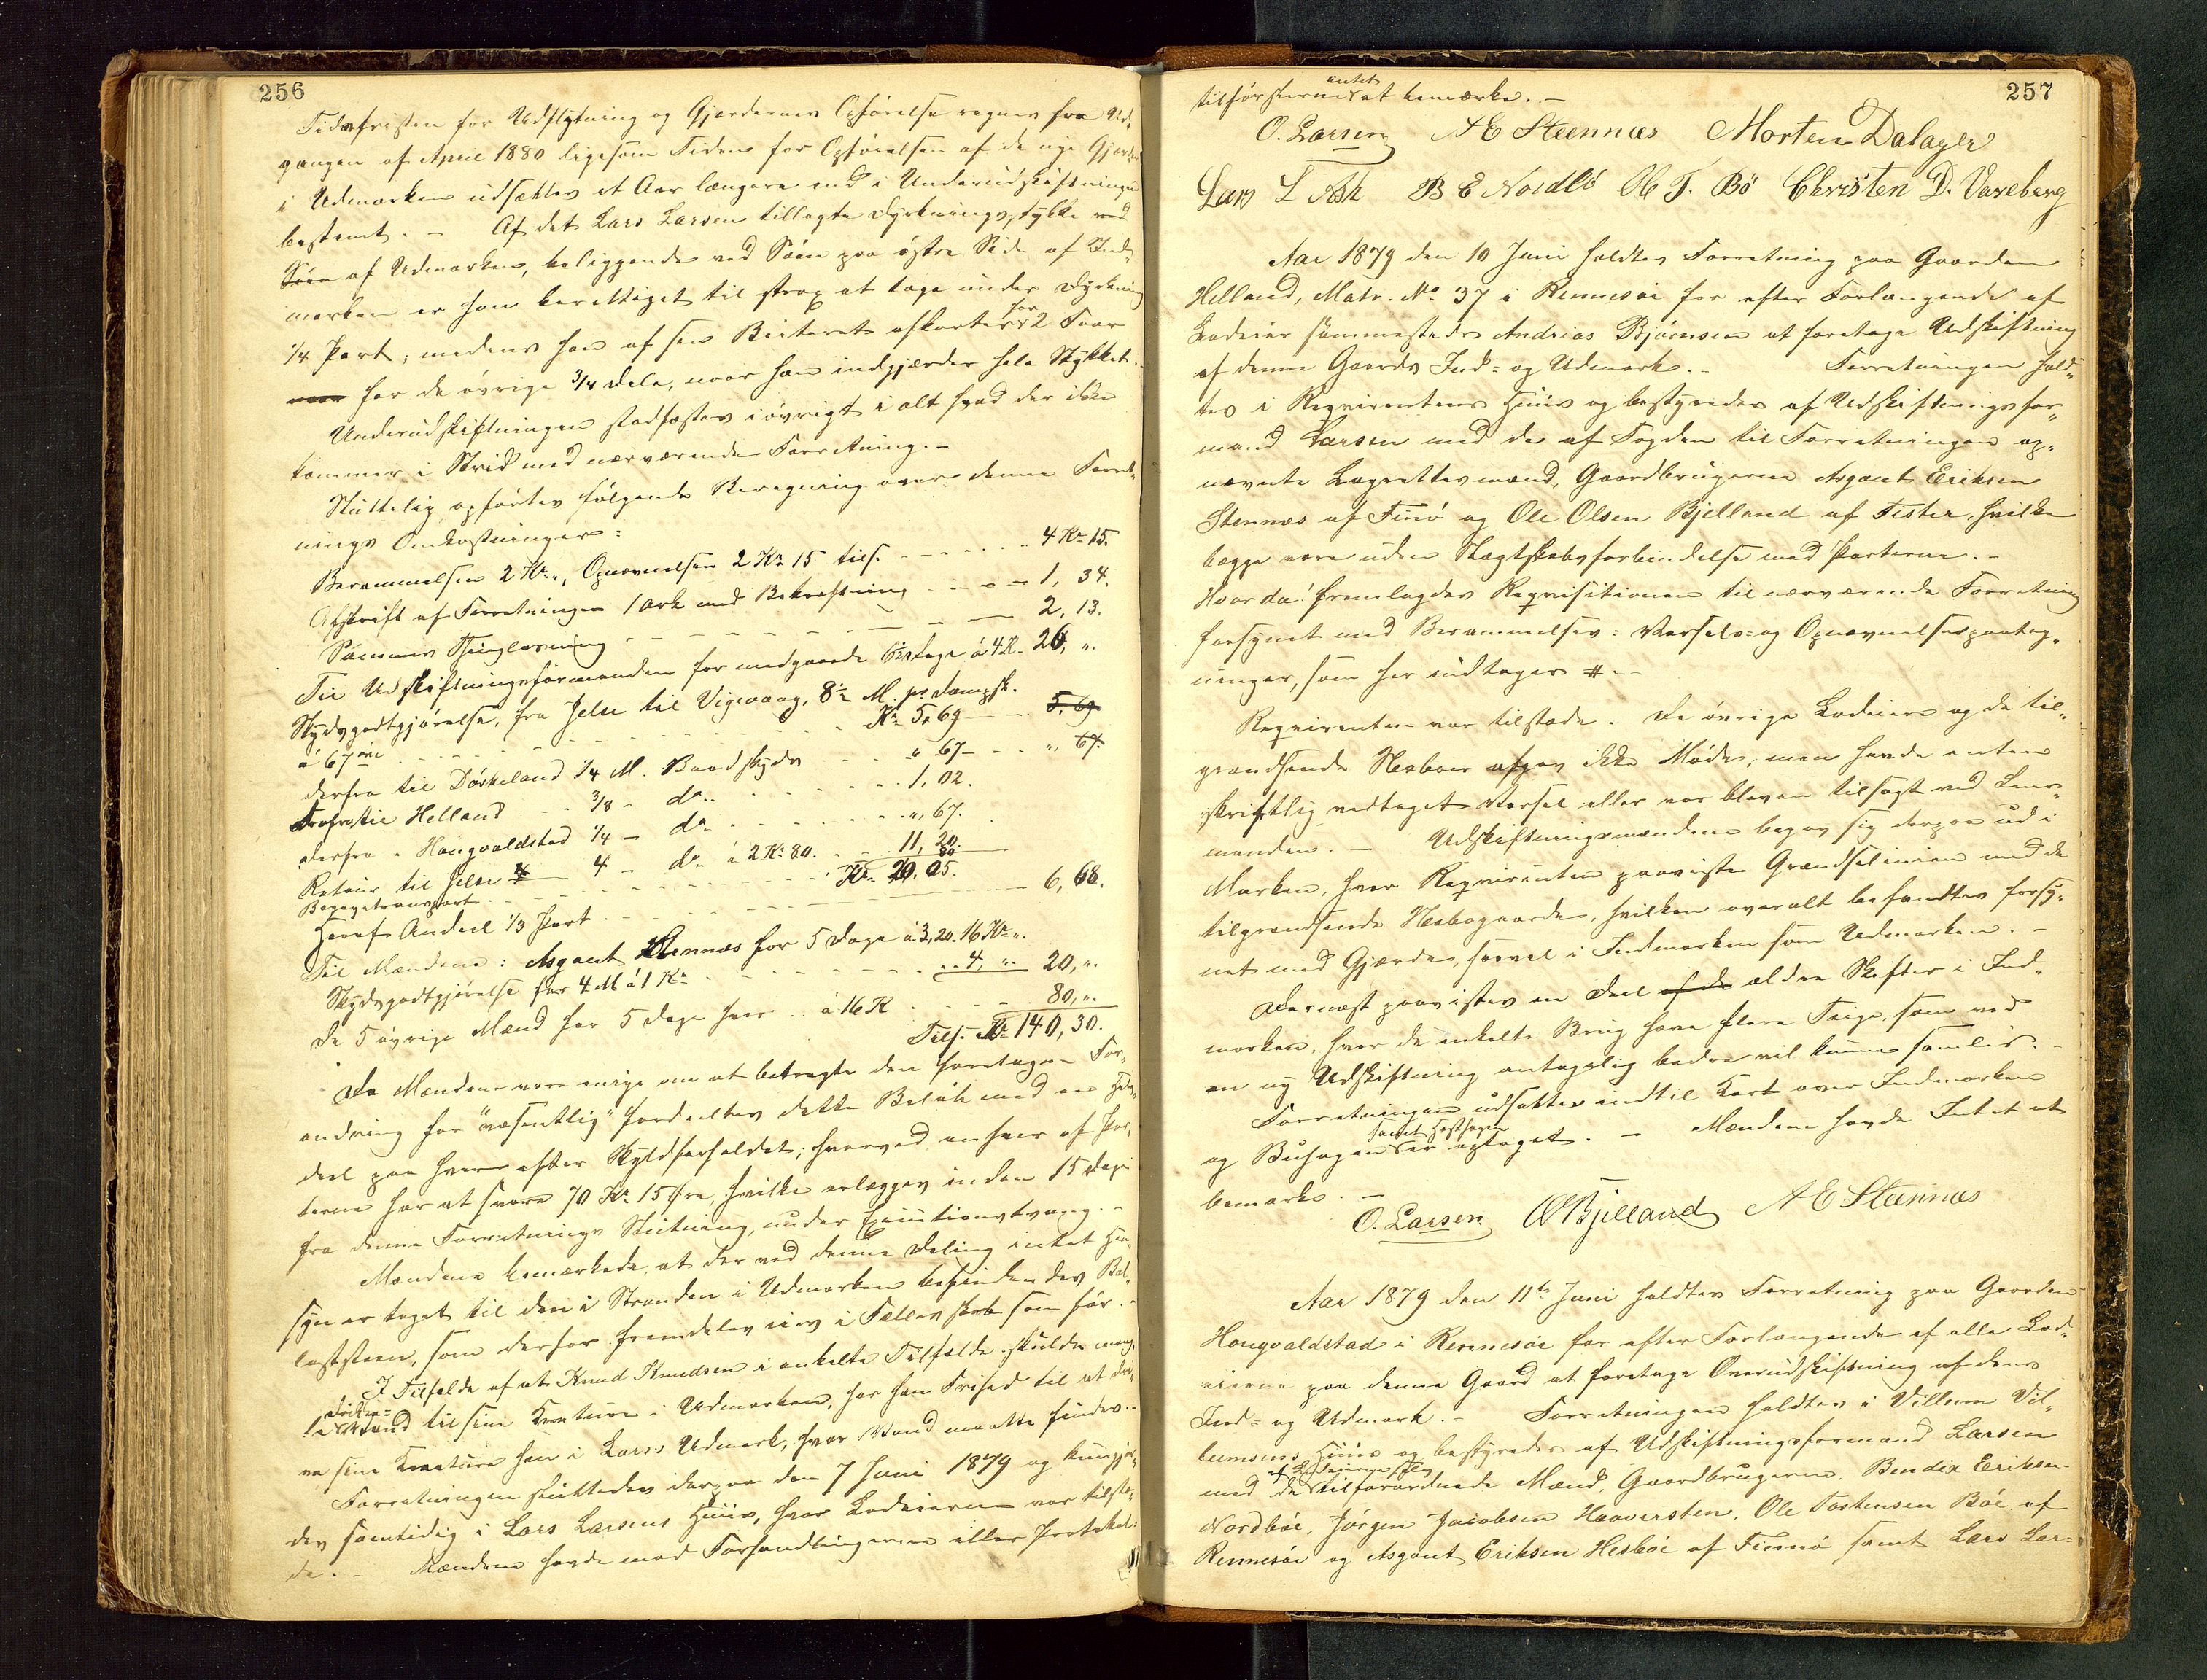 256
Tidsfristen for Udflytning og Gjerdernes Opførelse regnes fra Ud-
gangen af April 1880 ligesom Tiden for Opførelsen af de nye Gjerder
i Udmarken udsættes et Aar længere end i Underudskiftningen
bestemt. – Af det Lars Larsen tillagte Dyrkningsstykke ved
Søen af Udmarken, beliggende ved Søen paa østre Side af Ind-
marken er han berettiget til strax at tage under Dyrkning
1/4 Part; medens han af sin Beiteret afkortes for 2 Faar
for de øvrige 3/4 Dele, naar han indgjærder hele Stykket.
Underudskiftningen stadfæstes iøvrigt i alt hvad der ikke
kommer i Strid med nærværende Forretning. –
Sluttelig opførtes følgende Beregning over denne Forret-
nings Omkostninger:
Berammelsen 2 Kr. „, Opnævnelsen 2 Kr 15 tils. 4 Kr 15.
Afskrift af Forretningen 1 Ark med Bekræftning 1, 34.
Sammes Thinglæsning 2, 13.
Til Udskiftningsformanden for medgaaede 6½ Dage á 4 K. 26, „.
Skydsgodtgjørelse, fra Jelse til Vigevaag, 8½ M. pr. Dampsk.
á 67 øre Kr 5,69 5,69
derfra til Døskeland 1/4 M. Baadskyds „ 67 „ 67.
Derfra til Helland 3/8 – do. 1, 02.
derfra „ Hougvaldstad 1/4 – do. „, 67.
Retour til Jelse 4 – do. á 2 Kr 80. 11, 20.
Bagagetransport 80
Kr. 20.05.
Heraf Andeel 1/3 Part 6, 68.
Til Mændene: Asgaut Stennæs for 5 Dage á 3,20. 16 Kr „.
Skydsgodtgjørelse for 4 M á 1 Kr 4, „. 20, „.
De 5 øvrige Mænd for 5 Dage hver á 16 K 80, „.
Tils. Kr 140, 30.
Da Mændene vare enige om at betragte den foretagne For-
andring for "væsentlig" fordeeltes dette Beløb med en Halv-
deel paa hver efter Skyldforholdet; hvorved enhver af Par-
terne har at svare 70 Kr 15 Øre, hvilke erlægges inden 15 Dage
fra denne Forretnings Slutning, under Executionstvang. –
Mændene bemærkede, at der ved denne Deling intet Hen-
syn er taget til den i Stranden i Udmarken befindendes Bal-
laststeen, som derfor fremdeles eies i Fællesskab som før. –
I Tilfælde af at Knud Knudsen i enkelte Tilfælde skulde mang-
le Drikke-vand til sine Kreature i Udmarken, har han Frihed til at dri-
ve sine Kreature hen i Larses Udmark, hvor Vand maatte findes. –
Forretningen sluttedes derpaa den 7 Juni 1879 og kundgjor-
des samtidig i Lars Larsens Huus, hvor Lodeierne var tilste-
de. – Mændene havde mod Forhandlingerne eller Protokol-
257
tilførslerne intet at bemærke. –
O. Larsen A E Steennæs Morten Dalager
Lars L Ask B E Nordbö Ol T. Bö Christen D. Vareberg
Aar 1879 den 10 Juni holdtes Forretning paa Gaarden
Helland, Matr. No 37 i Rennesöe for efter Forlangende af
Lodeier sammesteds Andrias Bjørnsen at foretage Udskiftning
af denne Gaards Ind- og Udmark. – Forretningen hold-
tes i Reqvirentens Huus og bestyredes af Udskiftningsfor-
mand Larsen med de af Fogden til Forretningen op-
nævnte Lagrettesmænd, Gaardbrugerne Asgaut Eriksen
Stennæs af Finö og Ole Olsen Bjelland af Fister, hvilke
begge vare uden Slægtskabsforbindelse med Parterne. –
Hvorda: fremlagdes Reqvisitionen til nærværende Forretning
forsynet med Berammelses- Varsels- og Opnævnelsespaateg-
ninger, som her indtages #. –
Reqvirenten var tilstede. De øvrige Lodeiere og de til-
grændsende Naboer ikke Møde, men havde enten
skriftlig vedtaget Varsel eller var bleven tilsagt ved Lens-
manden. – Udskiftningsmændene begav sig derpaa ud i
Marken, hvor Reqvirenten paaviste Grændselinien med de
tilgrændsende Nabogaarde, hvilken overalt befandtes forsy-
net med Gjærde, saavel i Indmarken som Udmarken. –
Dernæst paavistes en Deel af de ældre Skifter i Ind-
marken, hvor de enkelte Brug have flere Teige, som ved
en ny Udskiftning antagelig bedre vil kunne samles. –
Forretningen udsattes indtil Kart over Indmarken
og Buhagen samt Hesthagen er optaget. – Mændene havde Intet at
bemærke. –
O. Larsen OOBjelland A E Steennæs
Aar 1879 den 11te Juni holdtes Forretning paa Gaarden
Hougvaldstad i Rennesöe for efter Forlangende af alle Lod-
eierne paa denne Gaard at foretage Overudskiftning af dens
Ind- og Udmark. – Forretningen holdtes i Villum Vil-
lumsens Huus og bestyredes af Udskiftningsformand Larsen
med de tilforordnede Mænd, Gaardbrugerne Bendix Eriksen
Nordböe, Jörgen Jacobsen Haaversten, Ole Tostensen Böe af
Rennesöe og Asgaut Eriksen Hesböe af Finnö samt Lars Lar-